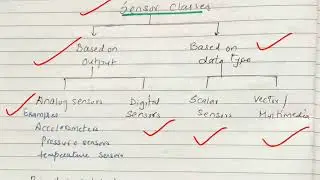 Sensor Classes
Based on Output
Based on data type
Analog sensors
Digital Sensors
Scalar Sensors
Vector / Multimedia
Examples
Accelerometers
Pressure sensors
temperature sensors